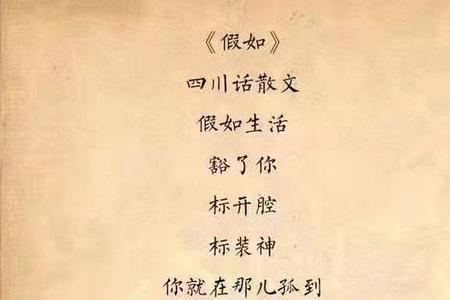 《假如》
四川话散文
假如生活
豁了你
标开腔
标装神
你就在那儿孤到